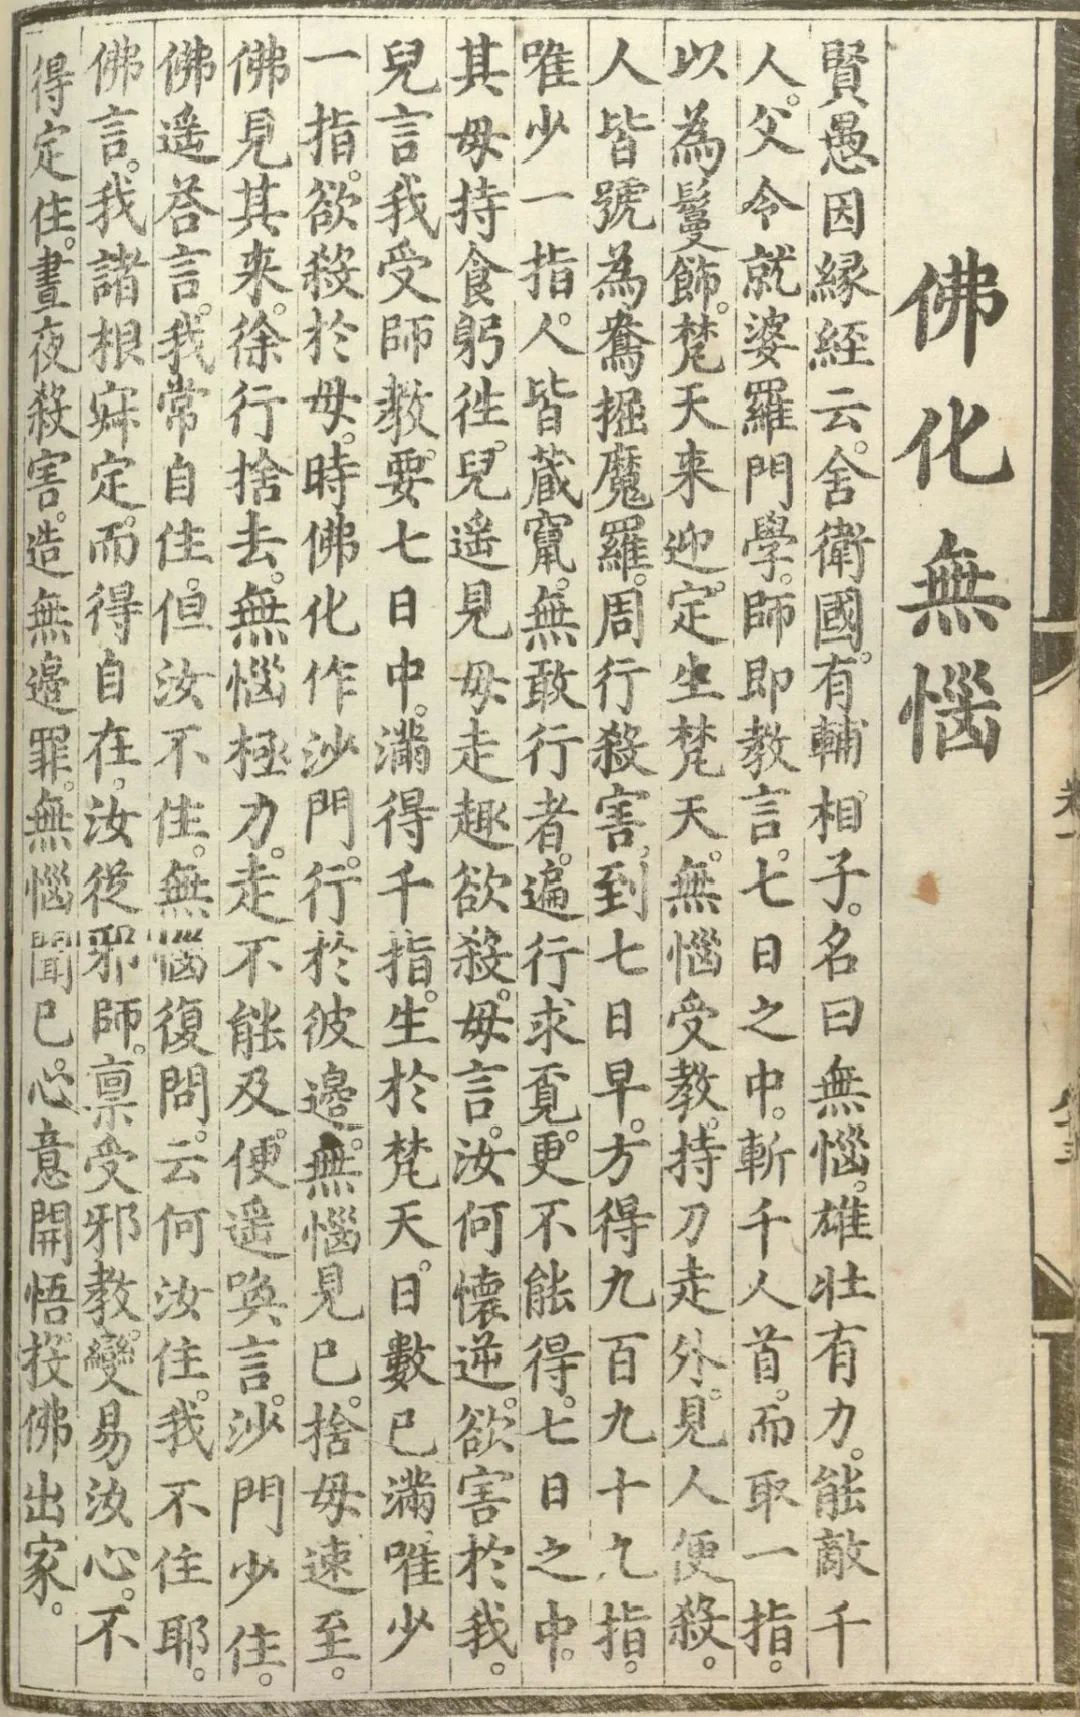 佛化無惱
賢愚因緣經云。舍衛國。有輔相子。名曰無惱。雄壯有力。能敵千
人。父令就婆羅門學。師即教言。七日之中。斬千人首。而取一指。
以為鬘飾。梵天來迎。定生梵天。無惱受教。持刀走外。見人便殺。
人皆號為鴦掘魔羅。周行殺害。到七日早。方得九百九十九指。
唯少一指。人皆藏竄。無敢行者。遍行求覓。更不能得。七日之中。
其母持食躬往。兒遥見母走趣欲殺。母言。汝何懷逆。欲害於我。
兒言我受師教。要七日中。滿得千指。生於梵天。日數已滿。唯少
一指。欲殺於母。時佛化作沙門。行於彼邊。無惱見已。捨母速至。
佛見其來。徐行捨去。無惱極力。走不能及。便遥喚言。沙門少住。
佛遥荅言。我常自住。但汝不住。無惱復問。云何汝住。我不住耶。
佛言。我諸根寂定。而得自在。汝從邪師。禀受邪教。變易汝心。不
得定住。晝夜殺害。造無邊罪。無惱聞已。心意開悟。投佛出家。
卷一